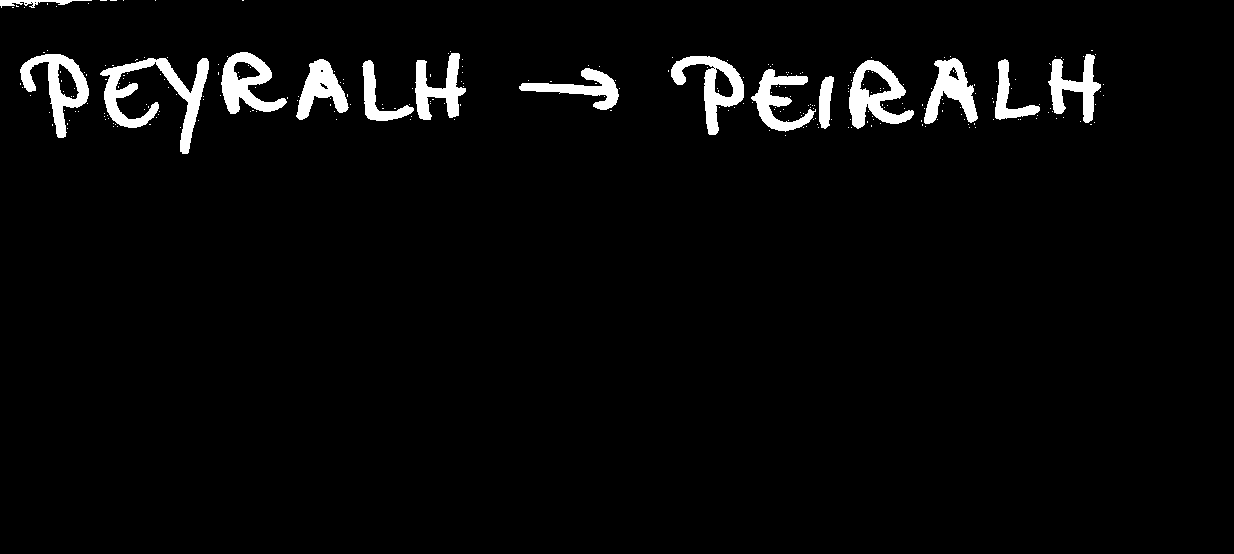 PEYRALH → PEIRALH